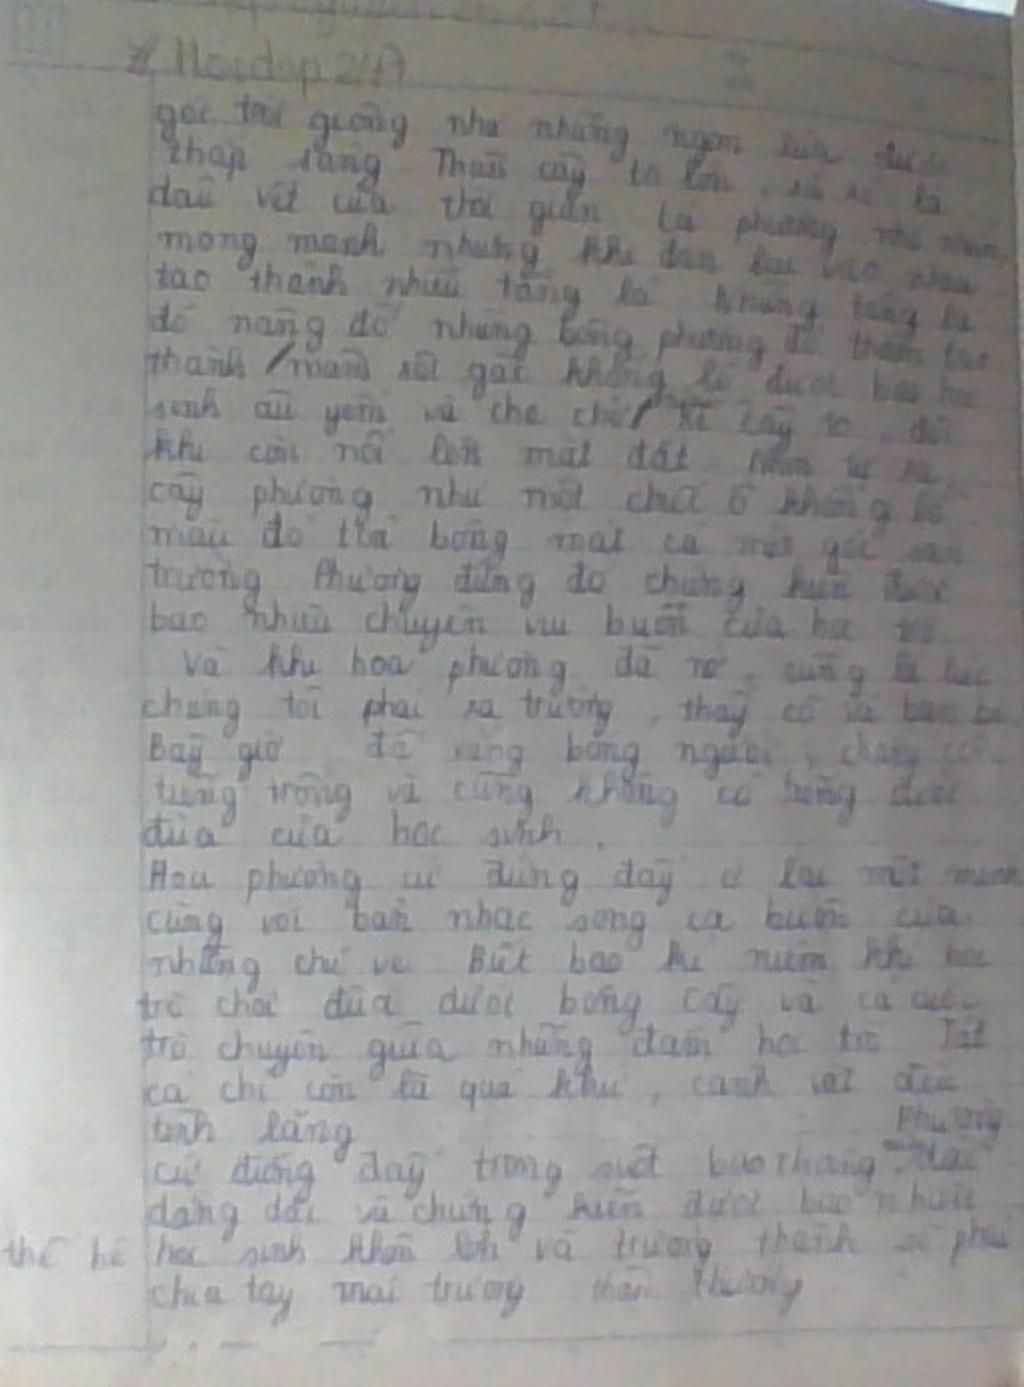 Hoidap247
góc trời giống như những ngọn lửa được
thắp sáng Thân cây to lớn, sù sì là
dấu vết của thời gian Lá phượng nhỏ nhắn,
mong manh nhưng khi đan lại vào nhau
tạo thành nhiều tầng lá Những tầng lá
đó nâng đỡ những bông phượng đỏ thắm tạo
thành mâm xôi gấc khổng lồ được bao học
sinh âu yếm và che chở Rễ cây to, đôi
khi còn nổi lên mặt đất Nhìn từ xa
cây phượng như một chiếc ô khổng lồ
màu đỏ tỏa bóng mát cả một góc sân
trường Phượng đứng đó chứng kiến được
bao nhiêu chuyện vui buồn của học trò
Và khi hoa phượng đã nở, cũng là lúc
chúng tôi phải xa trường, thầy cô và bạn bè
Bây giờ đã vắng bóng người, chẳng còn
tiếng trống và cũng không có tiếng cười
đùa của học sinh.
Hoa phượng cứ đứng đấy ở lại một mình
cùng với bản nhạc song ca buồn của
những chú ve Biết bao kỉ niệm khi học
trò chơi đùa dưới bóng cây và cả cuộc
trò chuyện giữa những đám học trò Tất
cả chỉ còn là quá khứ, cảnh vật đều
tĩnh lặng Phượng
cứ đứng đấy trong suốt bao tháng
dằng dặc và chứng kiến được bao nhiêu
thế hệ học sinh khôn lớn và trưởng thành sẽ phải
chia tay mái trường thân thương